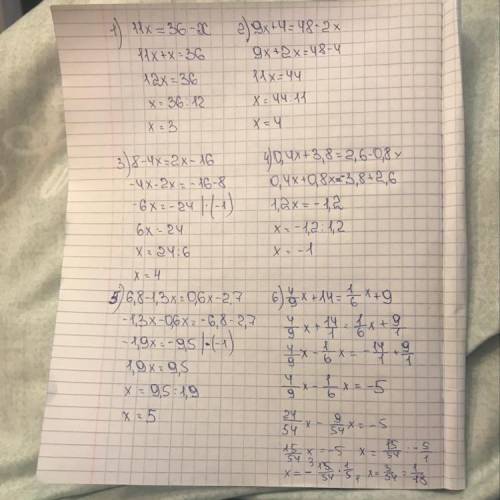 1) 11x=36-x
11x+x=36
12x=36
x=36:12
x=3
2) 9x+4=48-2x
9x+2x=48-4
11x=44
x=44:11
x=4
3) 8-4x=2x-16
-4x-2x=-16-8
-6x=-24 |·(-1)
6x=24
x=24:6
x=4
4) 0,4x+3,8=2,6-0,8x
0,4x+0,8x=-3,8+2,6
1,2x=-1,2
x=-1,2:1,2
x=-1
5) 6,8-1,3x=0,6x-2,7
-1,3x-0,6x=-6,8-2,7
-1,9x=-9,5 |·(-1)
1,9x=9,5
x=9,5:1,9
x=5
6) 4/9x+14=1/6x+9
4/9x+14/1=1/6x+9/1
4/9x-1/6x=-14/1+9/1
4/9x-1/6x=-5
24/54x-9/54x=-5
15/54x=-5 x=15/54:-5/1